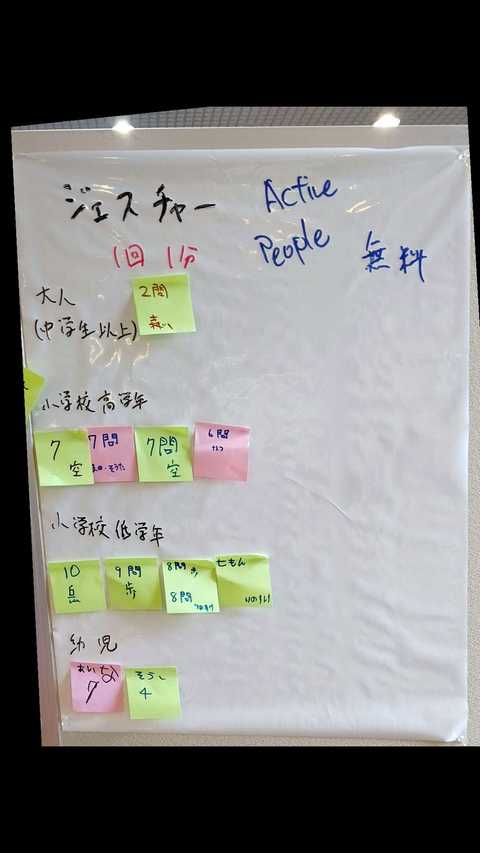 ジェスチャー
Active
People
無料
1回 1分
大人
(中学生以上)
2問
小学校高学年
7
空
7問
そうた
7問
空
6問
小学校低学年
10
9問
歩
8問 歩
8問
七もん
幼児
7
そうし
4